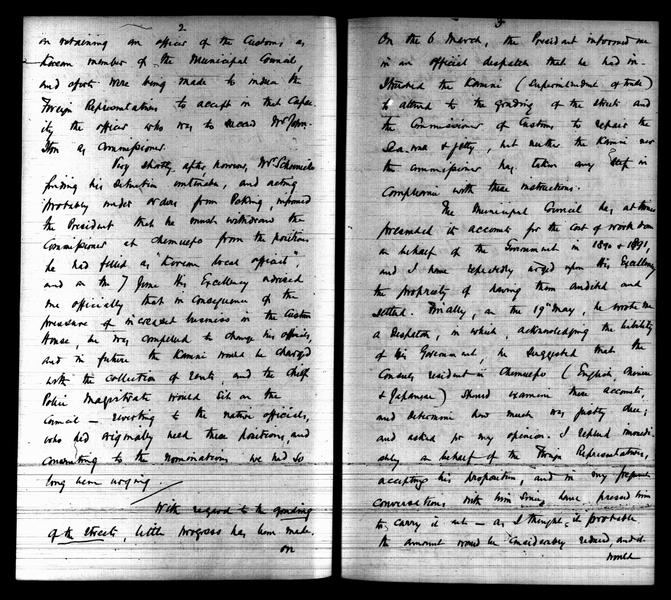 2
in retaining an officer of the Customs as
Korean member of the Municipal Council,
and efforts were being made to induce the
Foreign Representatives to accept in that capa-
city the officer who was to succeed Mr John-
ston as Commissioner.
Very shortly after however, Mr Schoenicke
finding his situation untenable, and acting
probably under orders from Peking informed
the President that he must withdraw the
Commissioner at Chemulpo from the positions
he had filled as "Korean local official";
and on the 7 June His Excellency advised
me officially that in consequence of the
pressure of increased business in the Custom
House, he was compelled to change his officials,
and in future the Kamni would be charged
with the collection of rents, and the chief
Police Magistrate would sit on the
Council — reverting to the native officials,
who did originally need these positions, and
consenting to the nominations we had so
long been urging.
With regard to the grading
of the streets, little progress has been made.
on
3
On the 6 March, the President informed me
in an official despatch that he had in-
structed the Kamni (Superintendent of trade)
to attend to the grading of the streets and
the Commissioner of Customs to repair the
sea wall & jetty, but neither the Kamni nor
the Commissioner has taken any step in
compliance with these instructions.
The Municipal Council has at times
presented its accounts for the cost of work done
on behalf of the Government in 1890 & 1891,
and I have repeatedly urged upon His Excellency
the propriety of having them audited and
settled. Finally, on the 19th May, he wrote me
a Despatch, in which, acknowledging the liability
of his Government, he suggested that the
Consuls resident in Chemulpo (English, Chinese
& Japanese) should examine these accounts,
and determine how much was justly due;
and asked for my opinion. I replied immedi-
ately on behalf of the Foreign Representatives,
accepting his proposition, and in my frequent
conversations with him since, have pressed him
to carry it out — as I thought it probable
the amount would be considerably reduced and it
would